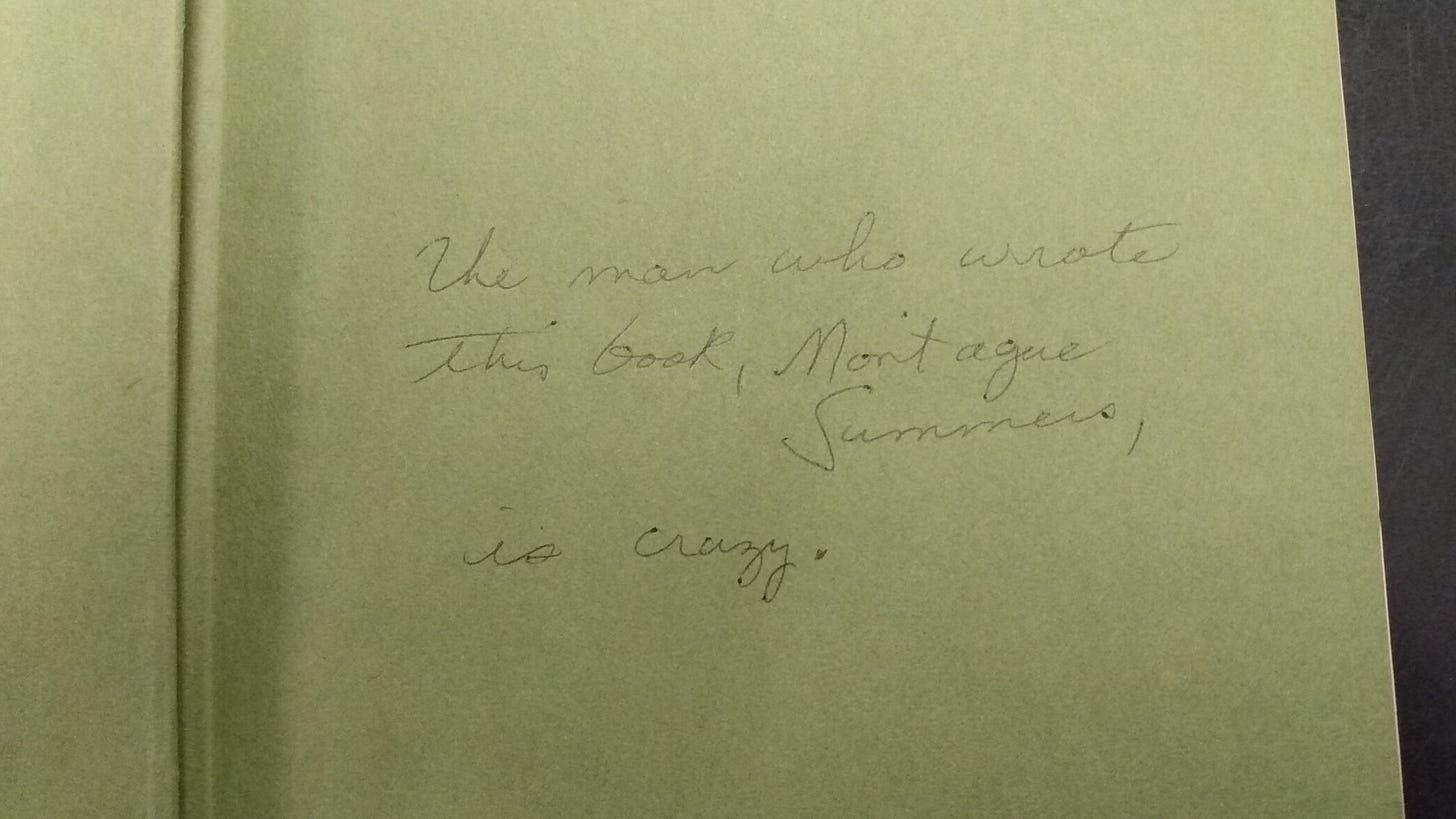 The man who wrote
this book, Montague
Summers,
is crazy.